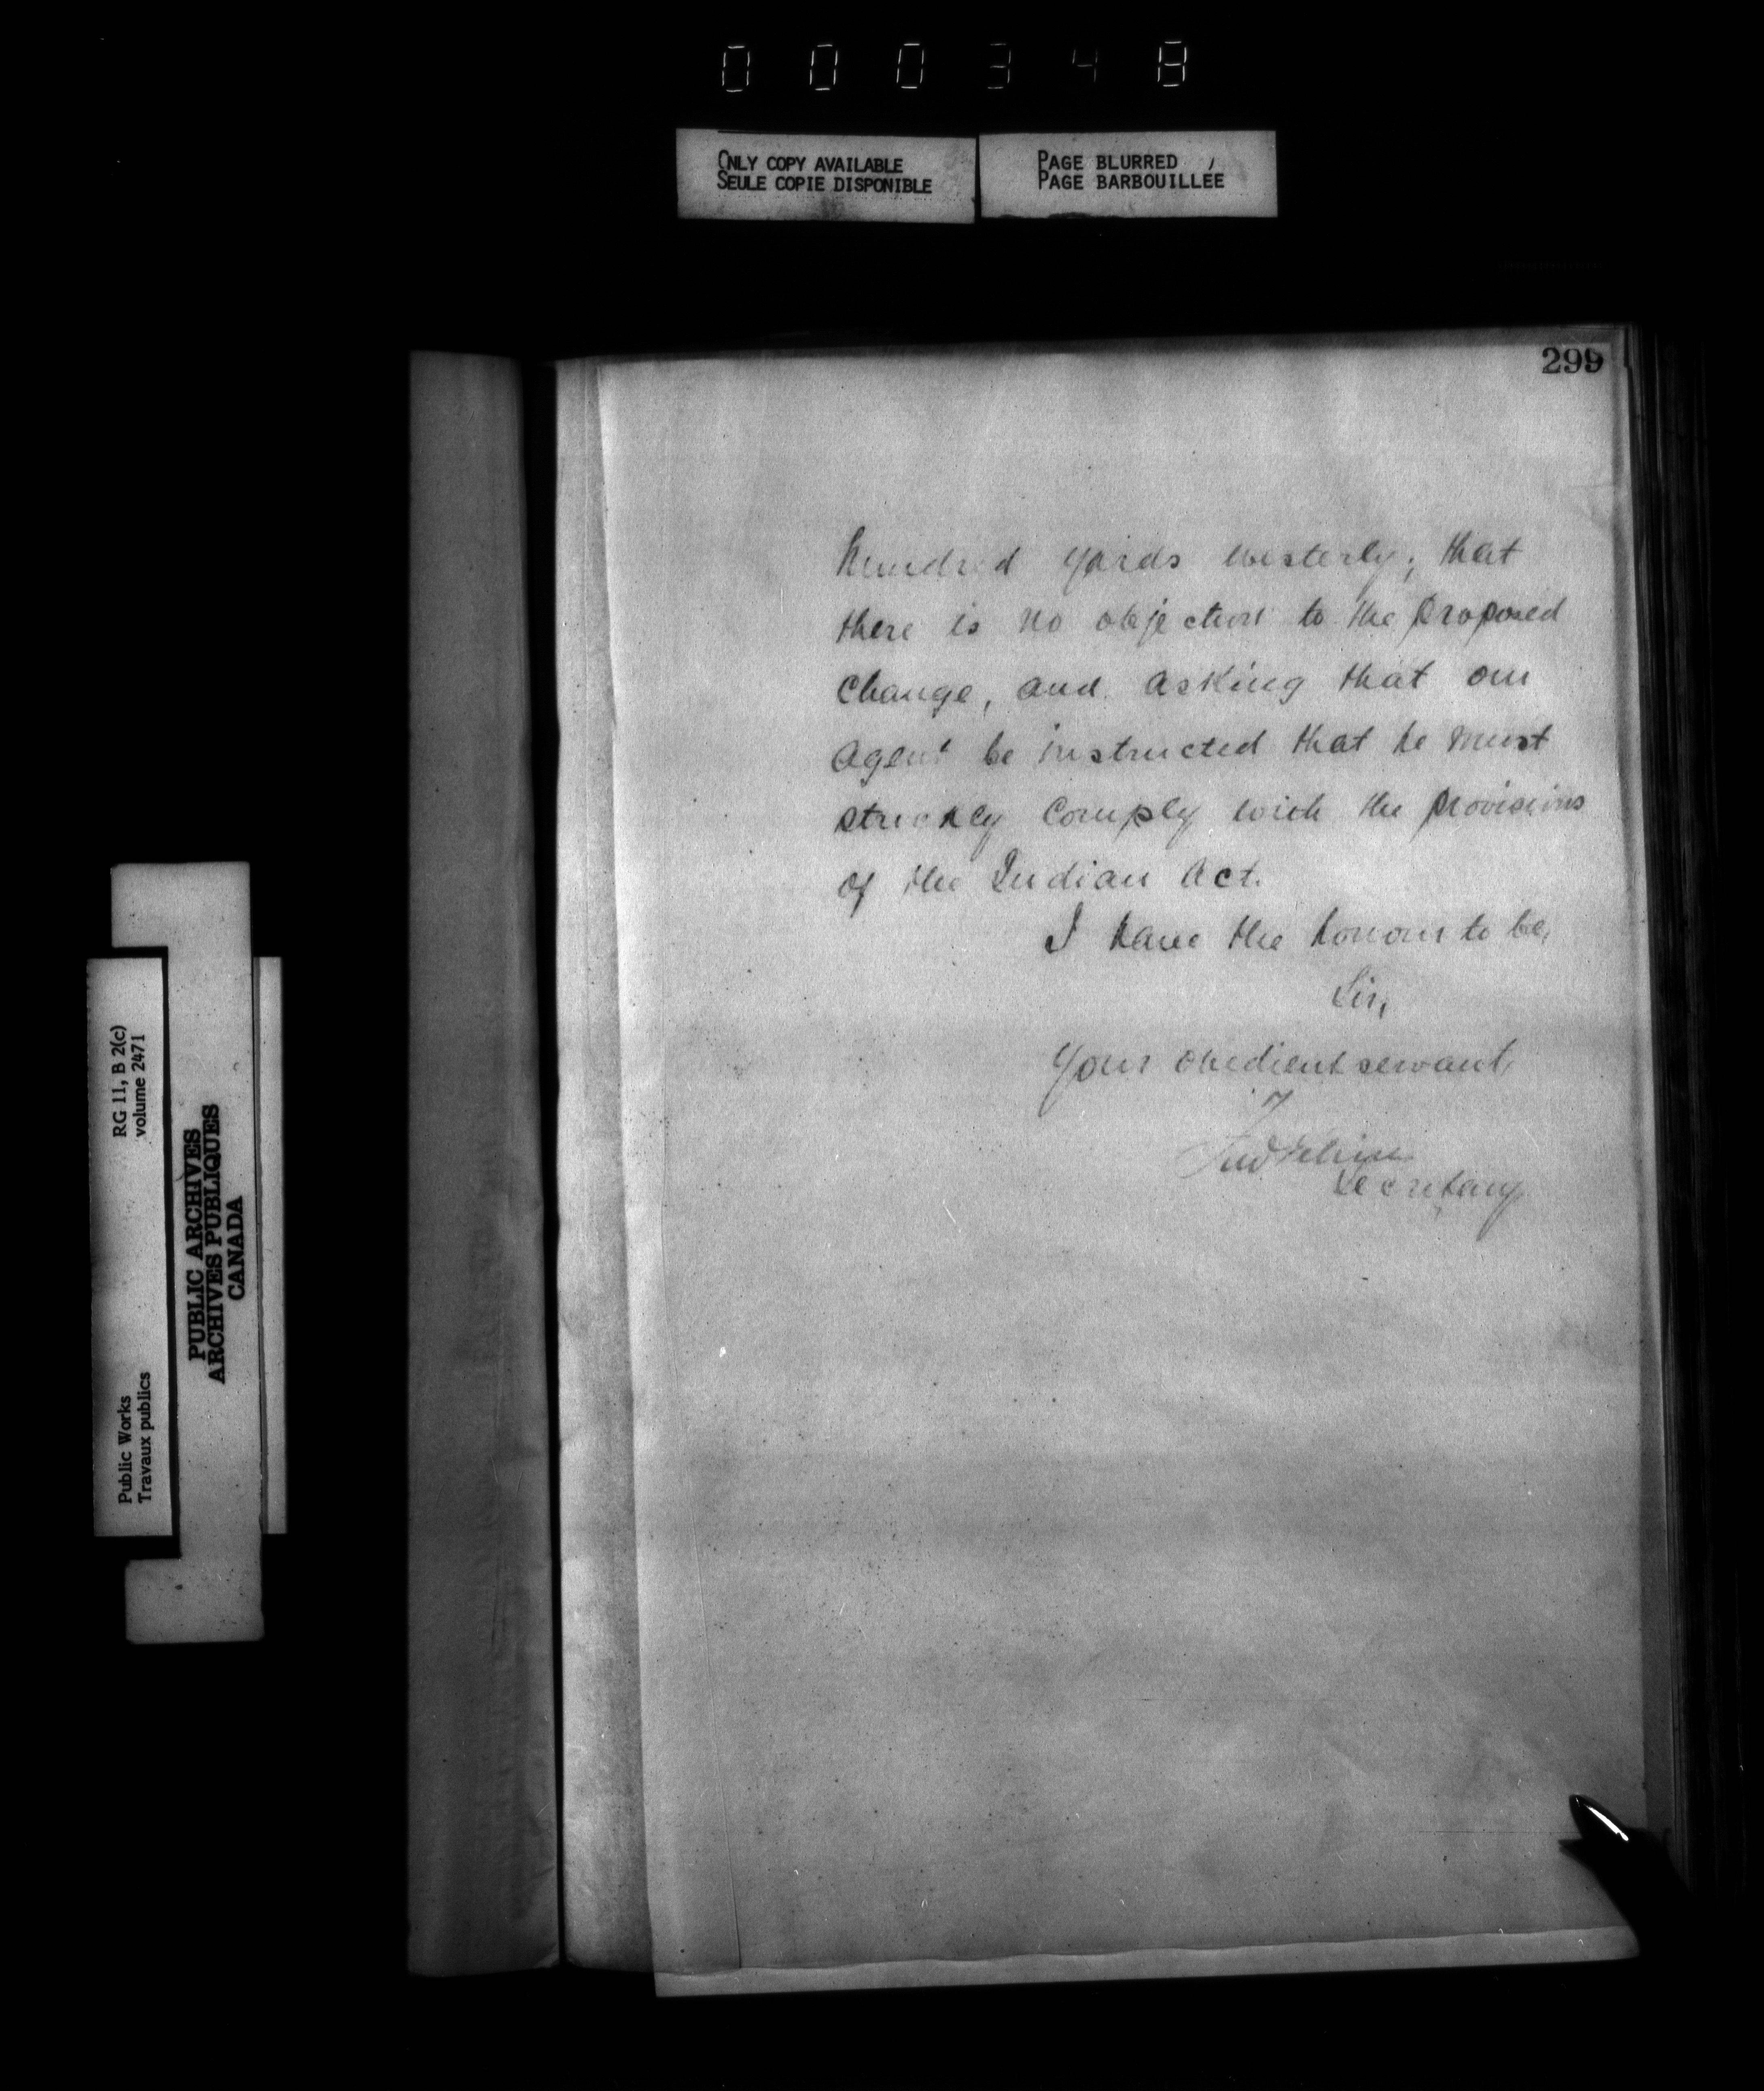 000348
ONLY COPY AVAILABLE
SEULE COPIE DISPONIBLE
PAGE BLURRED
PAGE BARBOUILLEE
299
hundred yards westerly; that
there is no objection to the proposed
change, and asking that our
agent be instructed that he must
strictly comply with the provisions
of the Indian Act.
I have the honour to be,
Sir,
Your obedient servant,
Secretary
RG 11, B 2(c)
volume 2471
Public Works
Travaux publics
PUBLIC ARCHIVES
ARCHIVES PUBLIQUES
CANADA